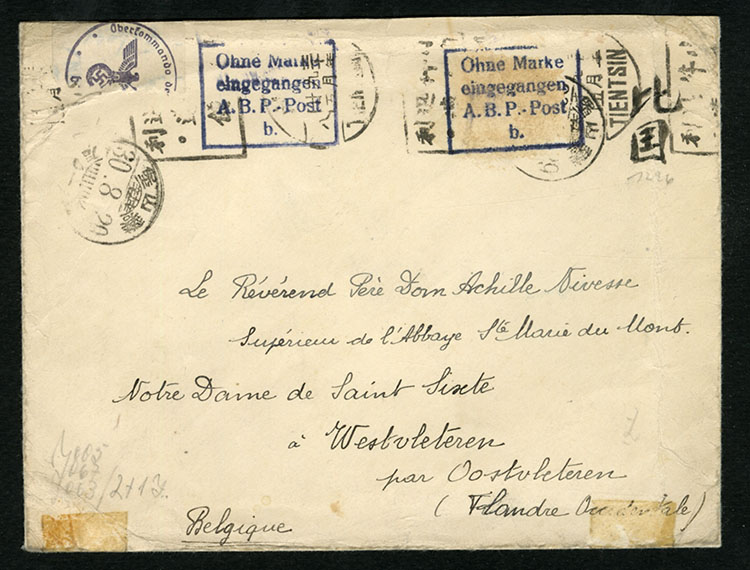 Oberkommando de
Ohne Marke
eingegangen
A.B.P.-Post
b.
Ohne Marke
eingegangen
A.B.P.-Post
b.
TIENTSIN
利
利
利
30.8.29
1296
Le Révérend Père Dom Achille Nivesse
Supérieur de l'Abbaye Ste Marie du Mont.
Notre Dame de Saint Sixte
à Westvleteren
par Oostvleteren
(Flandre Occidentale)
Belgique